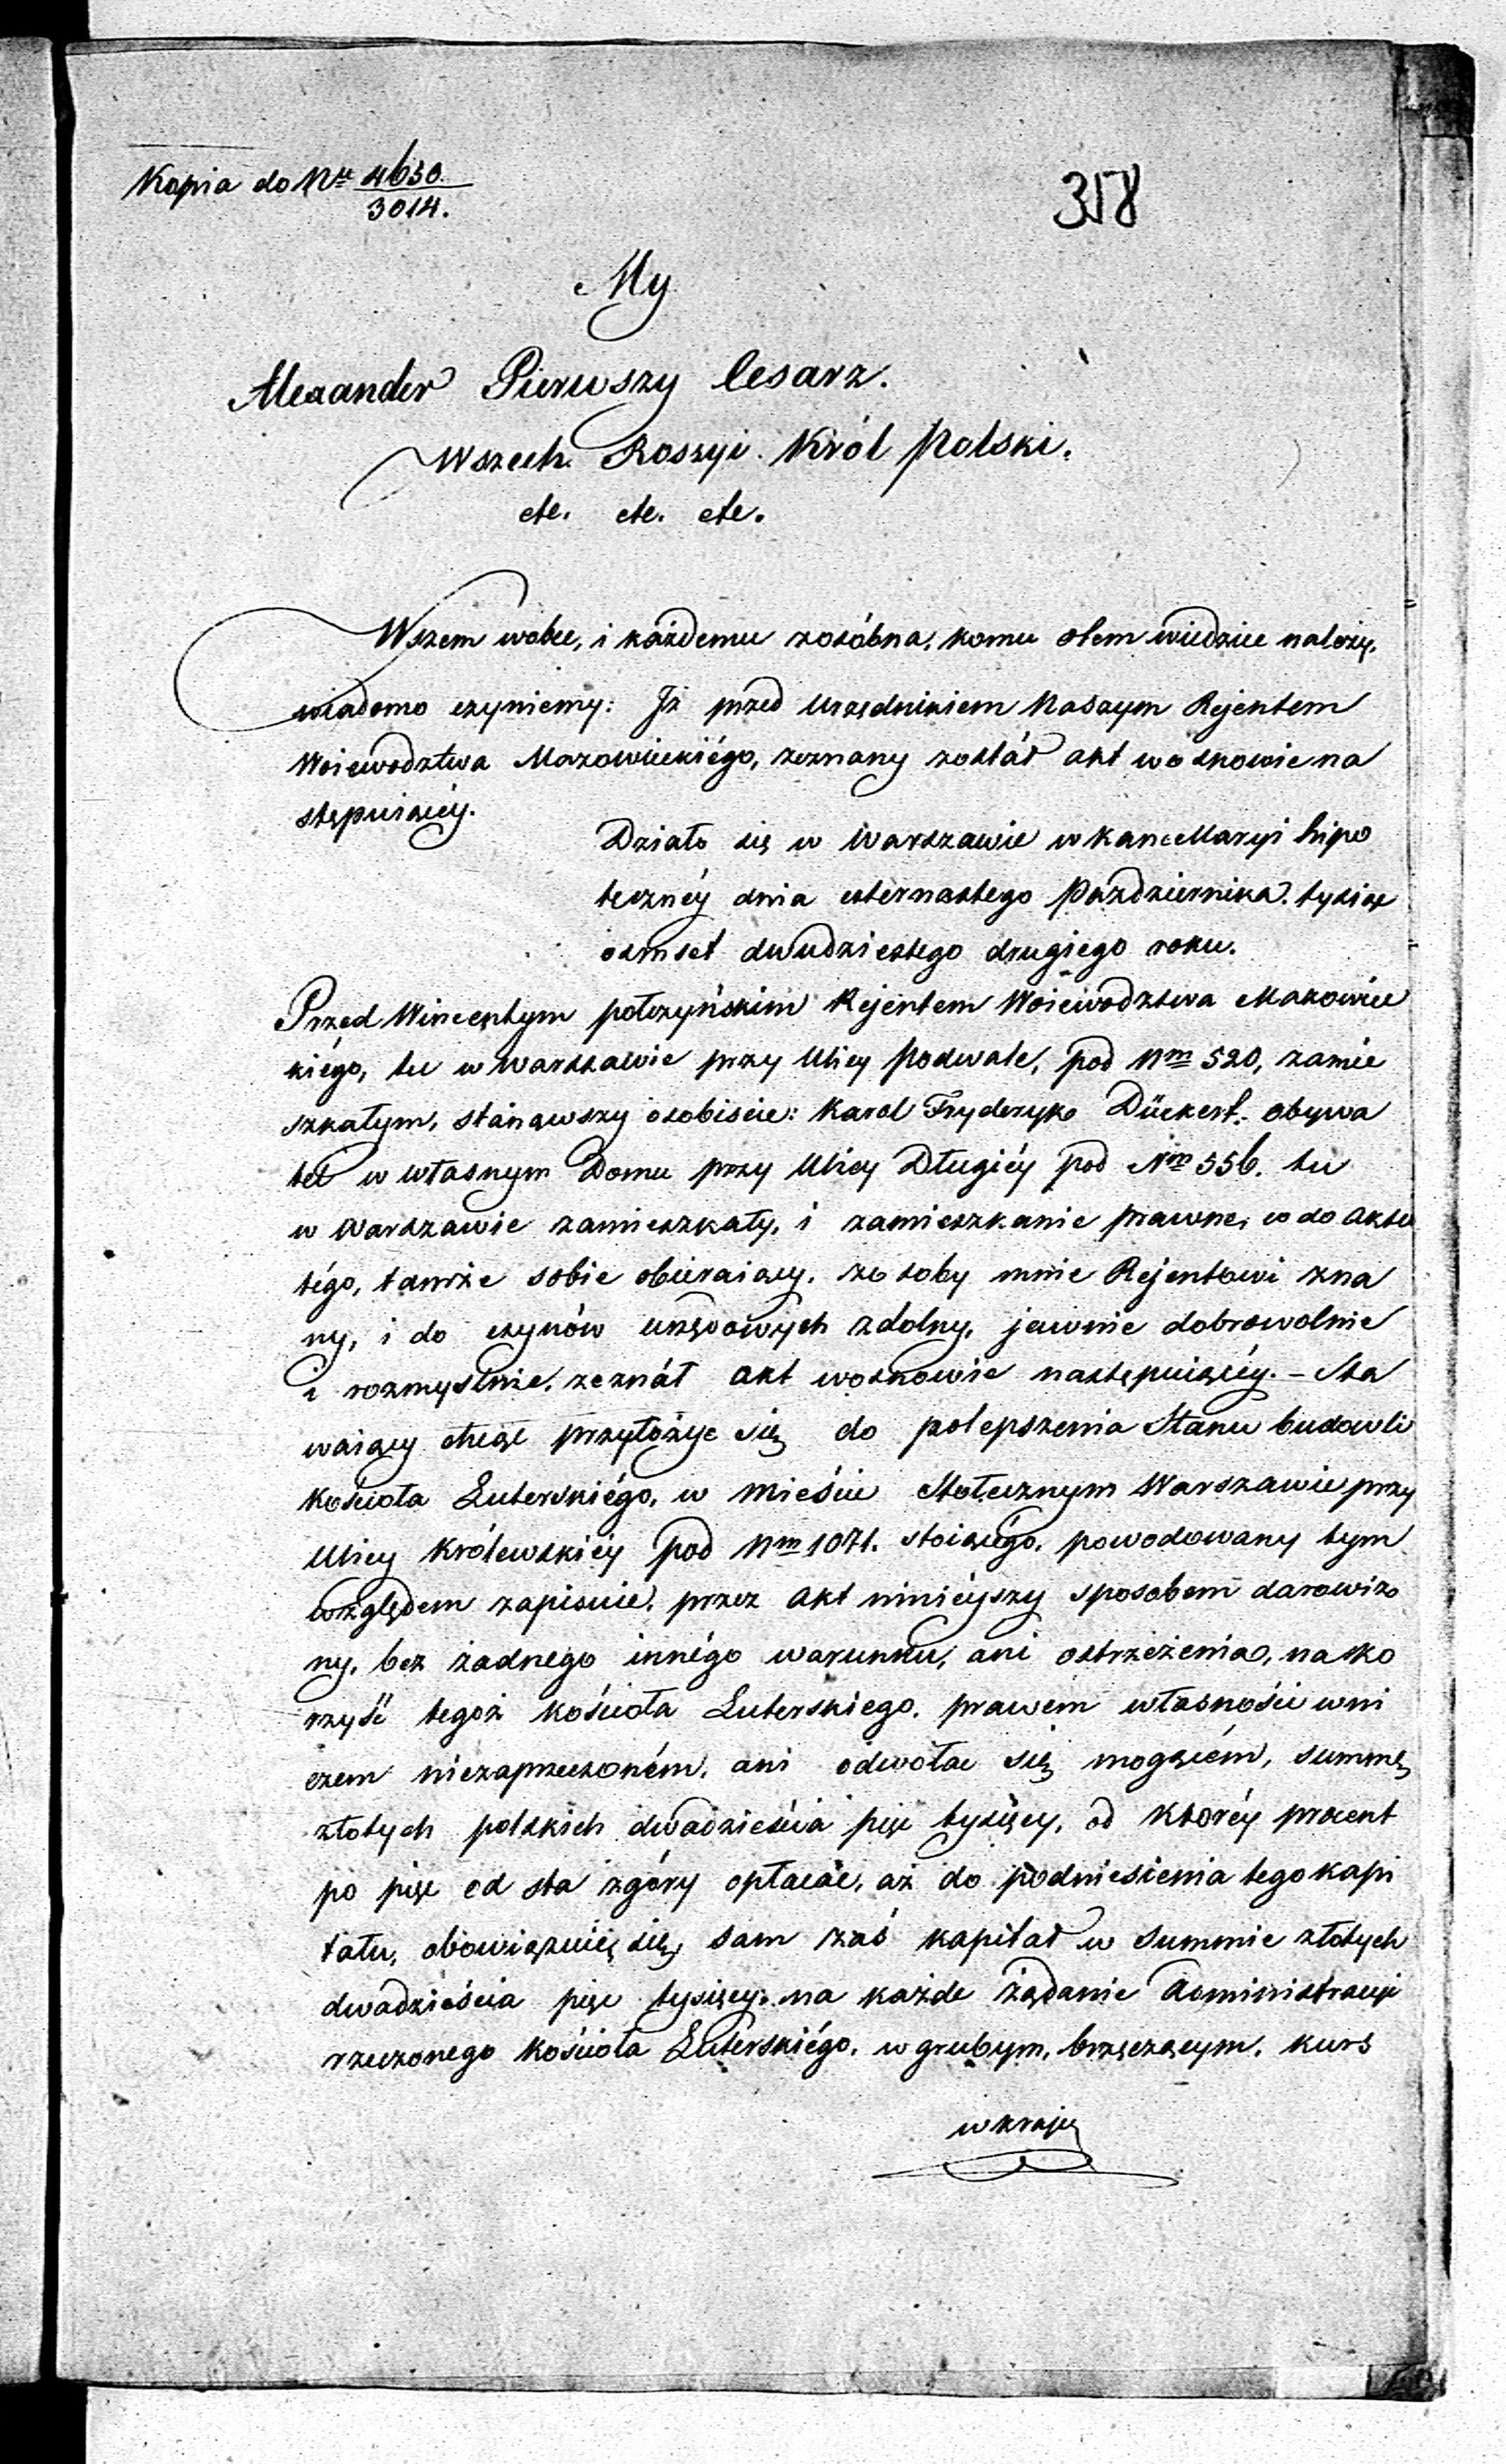 Kopia do Nru 4630.
3014.
318
My
Alexander Pierwszy Cesarz.
Wszech Rossyi. Król Polski.
etc. etc. etc.
Wszem wobec, i każdemu zosóbna, komu otem wiedzieć należy,
wiadomo czyniemy: Iż przed Urzędnikiem Naszym Rejentem
Woiewodztwa Mazowieckiégo, zeznany został akt w osnowie na
stępuiącéy.
Działo się w Warszawie w Kancellaryi hipo
tecznéy dnia czternastego Października tysiąc
osmset dwudziestego drugiego roku.
Przed Wincentym Potczyńskim Rejentem Woiewodztwa Mazowiec
kiégo, tu w Warszawie przy Ulicy Podwale, pod Nm 520, zamie
szkałym, stanąwszy osobiście: Karol Fryderyk Dückert. obywa
tel w własnym Domu przy Ulicy Długiéy pod Nm 556. tu
w Warszawie zamieszkały, i zamieszkanie prawne, co do aktu
tégo, tamże sobie obieraiący. zosoby mnie Rejentowi zna
ny, i do czynów urzędowych zdolny, jawnie dobrowolnie
i rozmyślnie, zeznał akt wosnowie następuiącéy. – Sta
waiący chcąc przyłożyć się do polepszenia Stanu budowli
Kościoła Luterskiégo, w mieście Stołecznym Warszawie przy
Ulicy Królewskiéy pod Nm 1071. stoiącégo, powodowany tym
względem zapisuie, przez akt ninieyszy sposobem darowizo
ny, bez żadnego innégo warunku, ani ostrzeżenia, na ko
rzyść tegoż kościoła Luterskiego, prawem własności w ni
czem niezaprzeczoném, ani odwołać się mogącém, summę
złotych polskich dwadzieścia pięć tysięcy, od któréy procent
po pięć od sta zgóry opłacać, aż do podniesienia tego kapi
tału, obowiązuię się, sam zaś kapitał w summie złotych
dwadzieścia pięć tysięcy, na każde żądanie Administracyi
rzeczonego kościoła Luterskiégo, w grubym, brzęczącym, kurs
w kraju